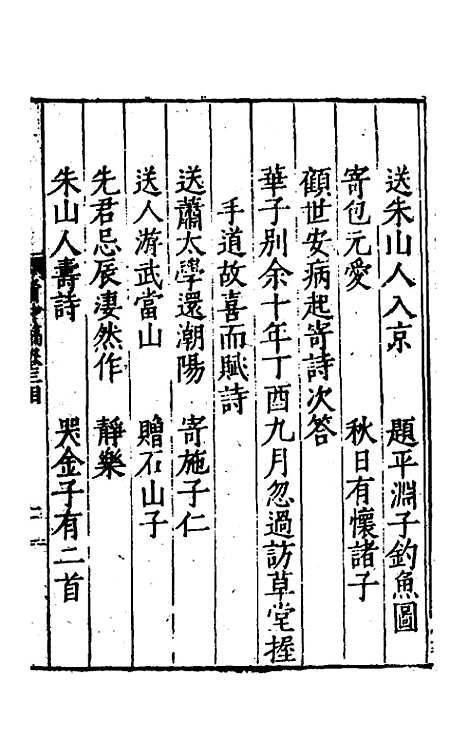 送朱山人入京　題平淵子釣魚圖
寄包元愛　秋日有懷諸子
顧世安病起寄詩次答
華子別余十年丁酉九月忽過訪草堂握
手道故喜而賦詩
送蕭太學還潮陽　寄施子仁
送人游武當山　贈石山子
先君忌辰淒然作　靜樂
朱山人壽詩　哭金子有二首